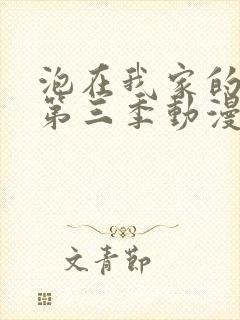 泡在我家的
第三季動漫
文青節